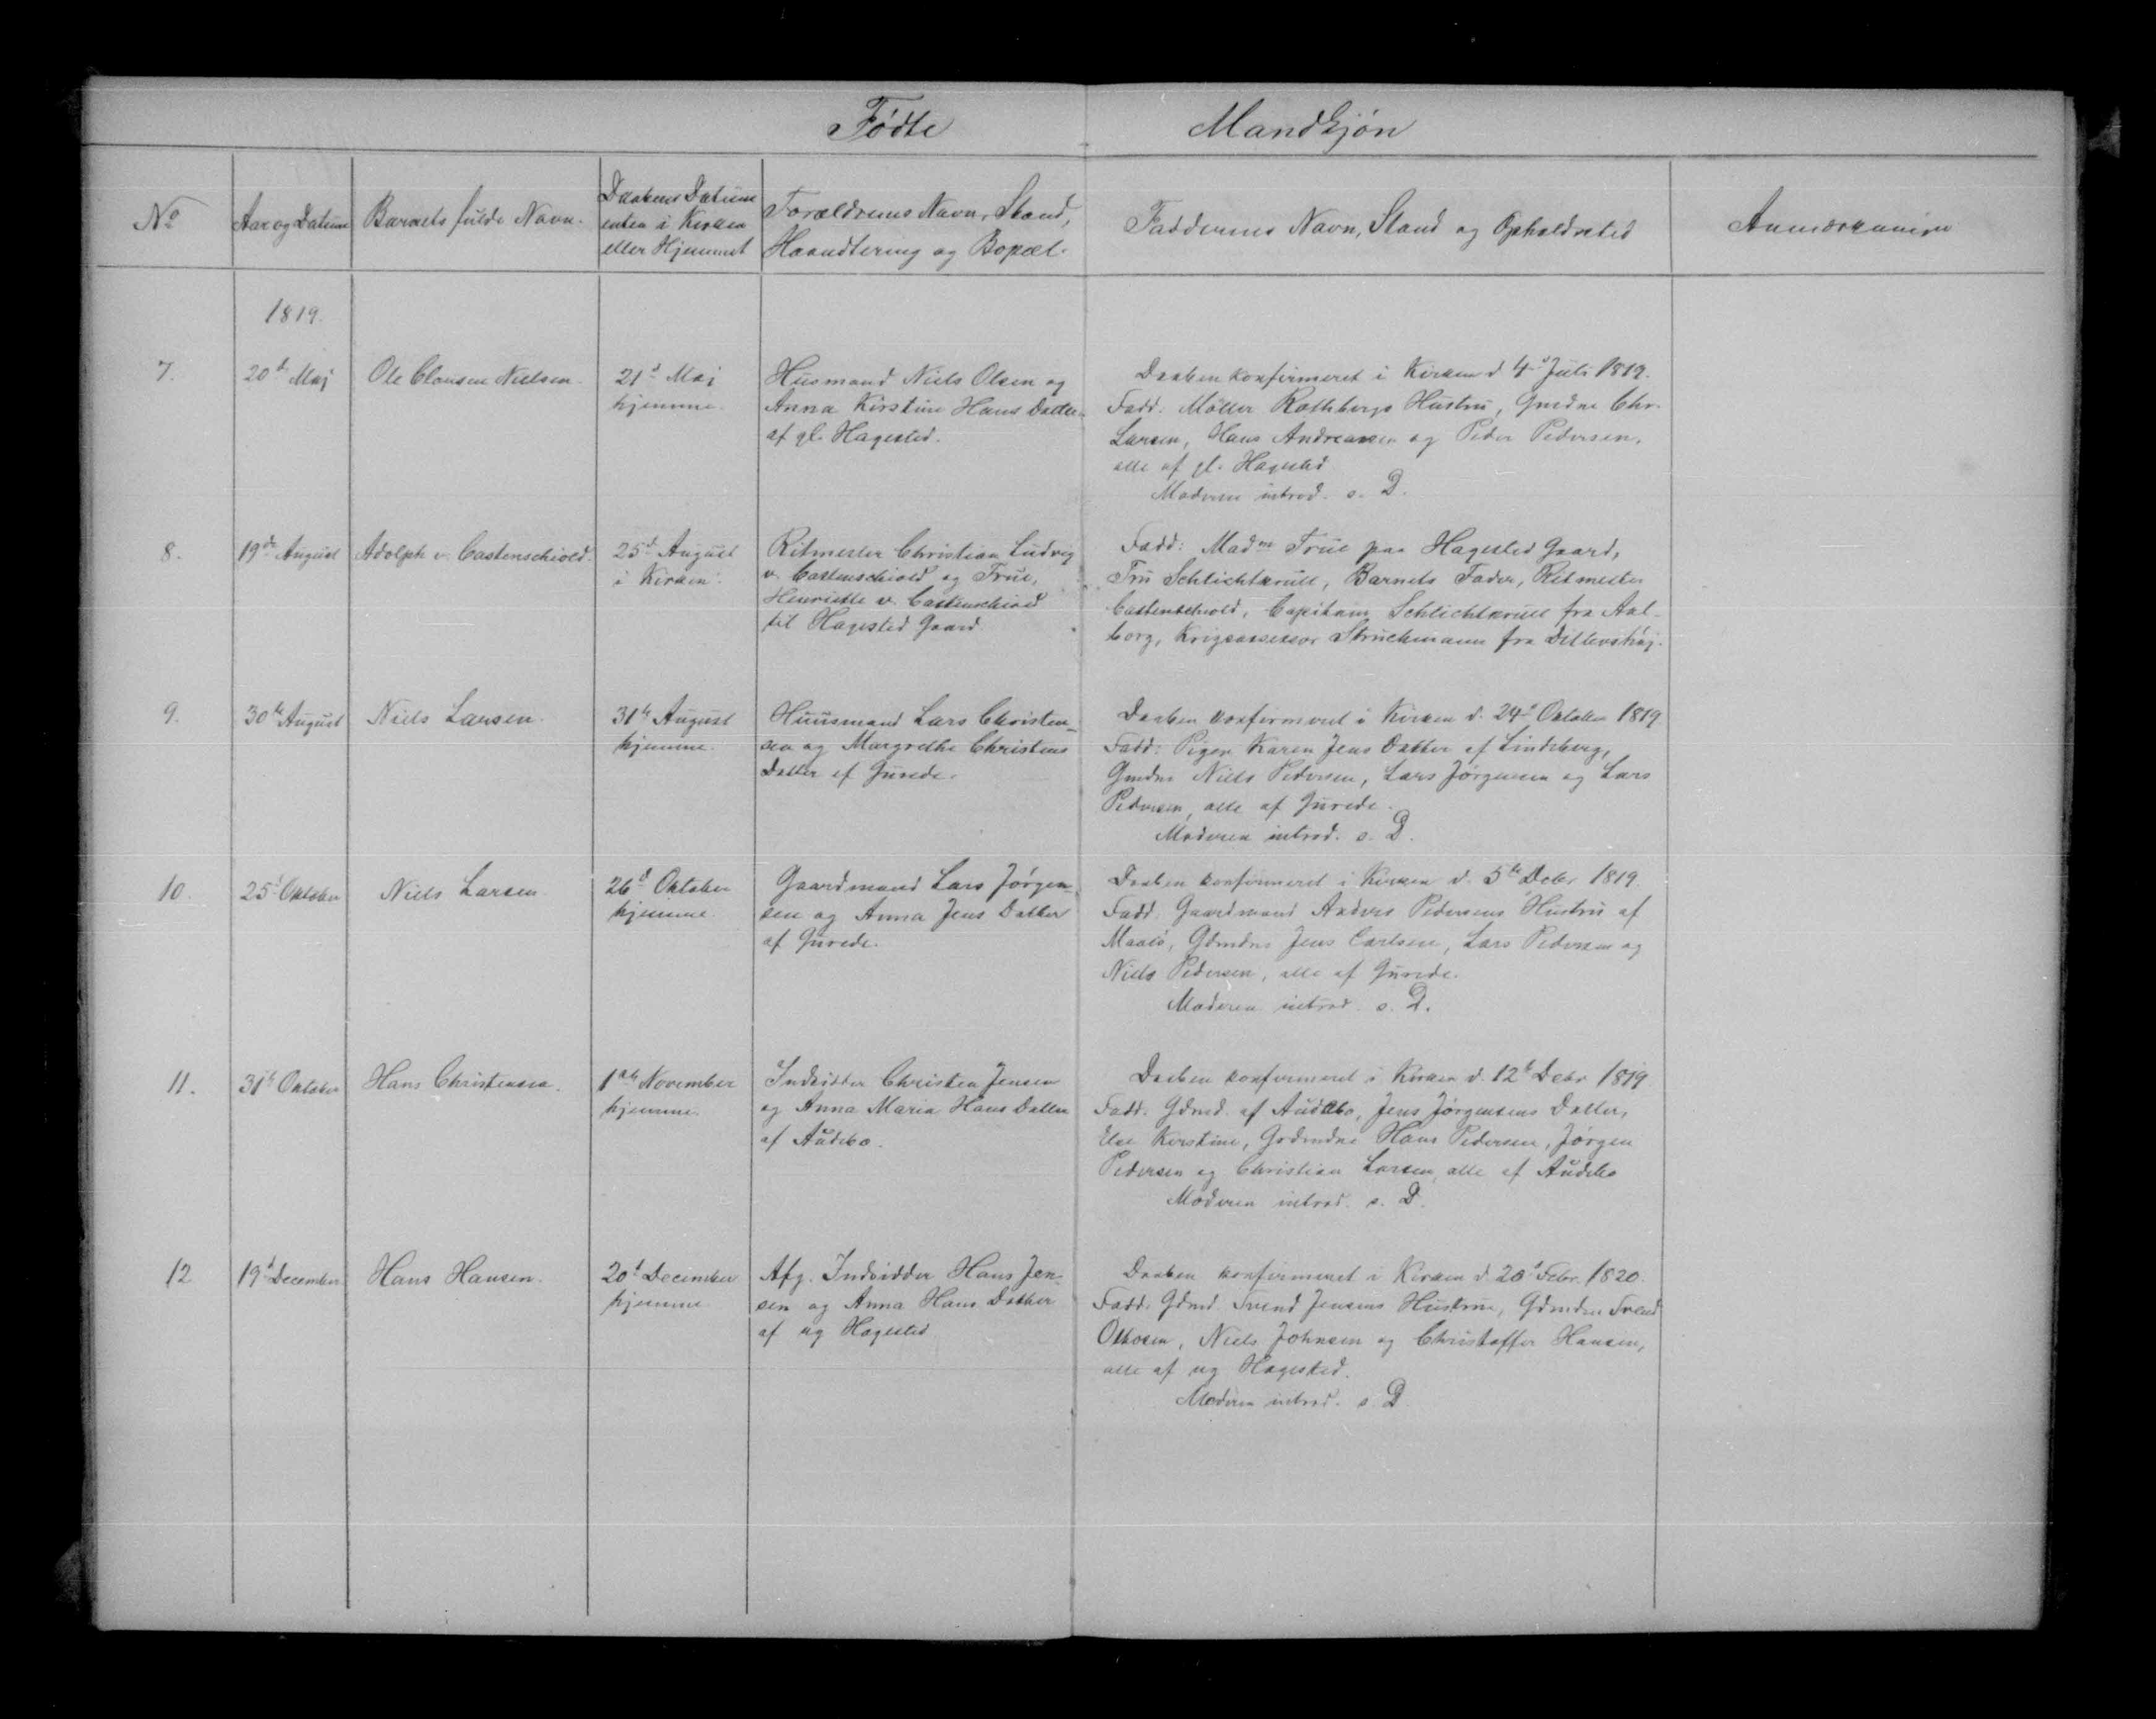 Fødte Mandkjøn
No Aar og Datum Barnets fulde Navn. Daabens Datum enten i Kirken eller Hjemmet Forældrenes Navn, Stand, Haandtering og Bopæl. Faddernes Navn, Stand og Opholdssted Anmærkninger
1819.
7. 20d Maj Ole Clausen Nielsen 21d Maj
hjemme.
Husmand Niels Olsen og
Anna Kirstine Hans Datter
af gl. Hagested.
Daaben konfirmeret i Kirken d 4d Juli 1819.
Fadd: Møller Rothbergs Hustru, Gmdne Chr.
Larsen, Hans Andreasen og Peder Pedersen,
alle af gl. Hagested
Moderen introd. s. D.
8. 19de August Adolph v. Castenschiold. 25d August
i Kirken.
Ritmester Christian Ludvig
v. Castenschiold og Frue,
Henriette v. Castenschiold
til Hagested Gaard
Fadd: Madme True paa Hagested Gaard,
Fru Schlichtkrull, Barnets Fader, Ritmester
Castenschiold, Capitain Schlichtkrull fra Aal-
borg, Krigsassessor Struchmann fra Ditlevshøj.
9. 30te August Niels Larsen. 31te August
hjemme.
Huusmand Lars Christen-
sen og Margrethe Christens
Datter af Gurede.
Daaben konfirmeret i Kirken d. 24d Oktober 1819
Fadd: Pigen Karen Jens Datter af Lindebjerg,
Gmdne Niels Pedersen, Lars Jørgensen og Lars
Pedersen, alle af Gurede.
Moderen introd. s. D.
10. 25d Oktober Niels Larsen 26d Oktober
hjemme.
Gaardmand Lars Jørgen-
sen og Anna Jens Datter
af Gurede.
Daaben konfirmeret i Kirken d. 5te Debr 1819.
Fadd. Gaardmand Anders Pedersens Hustru af
Gdmdne Jens Carlsen, Lars Pedersen og
Niels Pedersen, alle af Gurede.
Moderen introd. s. D.
11. 31te Oktober Hans Christensen. 1ste November
hjemme.
Indsidder Christen Jensen
og Anna Maria Hans Datter
af Audebo.
Daaben konfirmeret i Kirken d. 12te Debr 1819
Fadd. Gdmd. af Audebo, Jens Jørgensens Datter,
Else Kirstine, Gdmdne Hans Pedersen, Jørgen
Pedersen og Christian Larsen, alle af Audebo
Moderen introd. s. D.
12 19d December Hans Hansen. 20d December
hjemme
Afg. Indsidder Hans Jen-
sen og Anna Hans Datter
af ny Hagested
Daaben konfirmeret i Kirken d. 20d Febr. 1820.
Fadd. Gdmd. Svend Jensens Hustrue, Gdmdne Svend
Ottosen, Niels Johnsen og Christoffer Hansen,
alle af ny Hagested.
Moderen introd. s. D